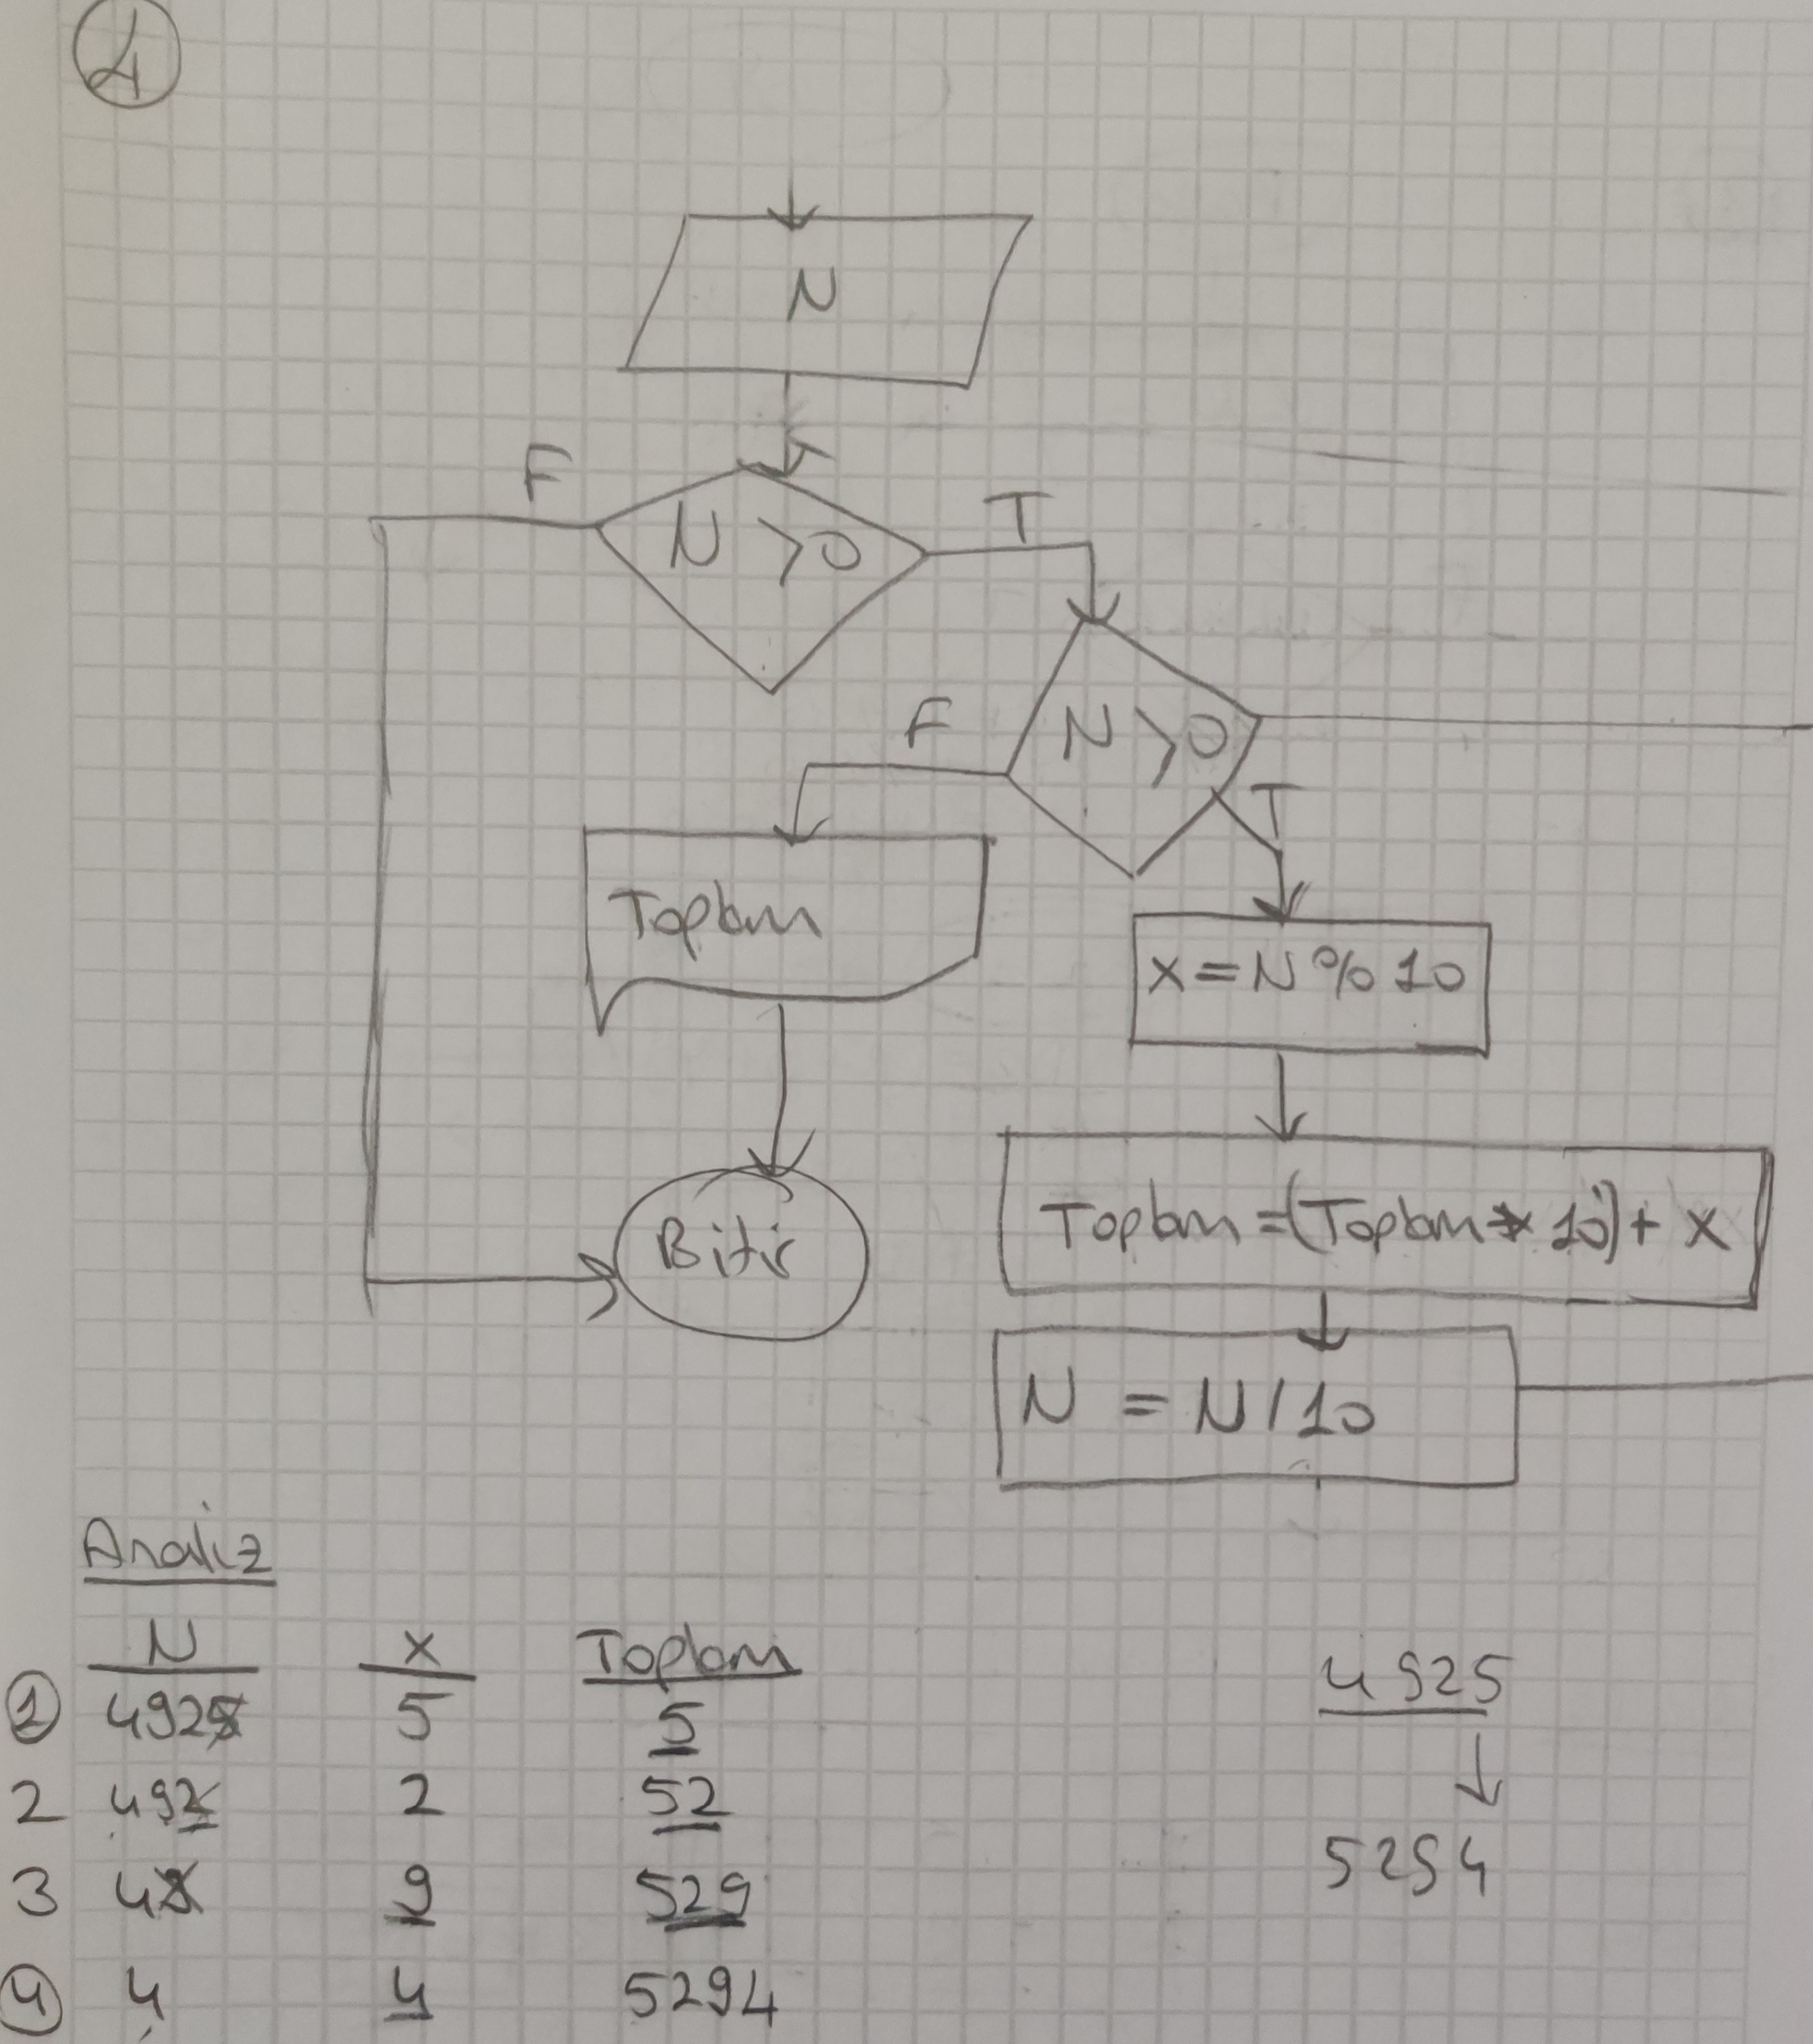 4
N
F
N > 0
T
F
N > 0
T
Toplam
x = N % 10
Toplam = (Toplam * 10) + x
Bitir
N = N / 10
Analiz
N x Toplam
1 4925 5 5
2 492 2 52
3 49 9 529
4 4 4 5294
4925
5294